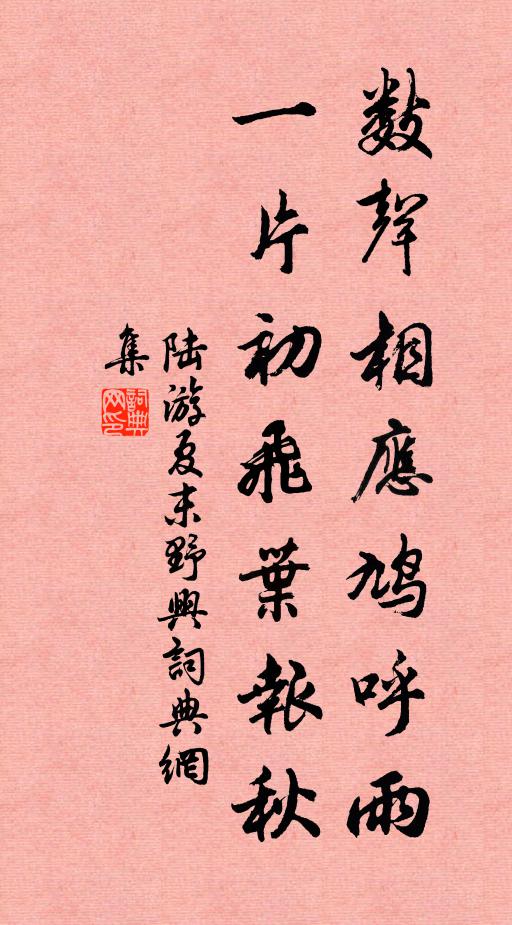 數聲相應鳩呼雨
一片初飛葉報秋
陆游夏末野興詞典網
集
詞典
网印